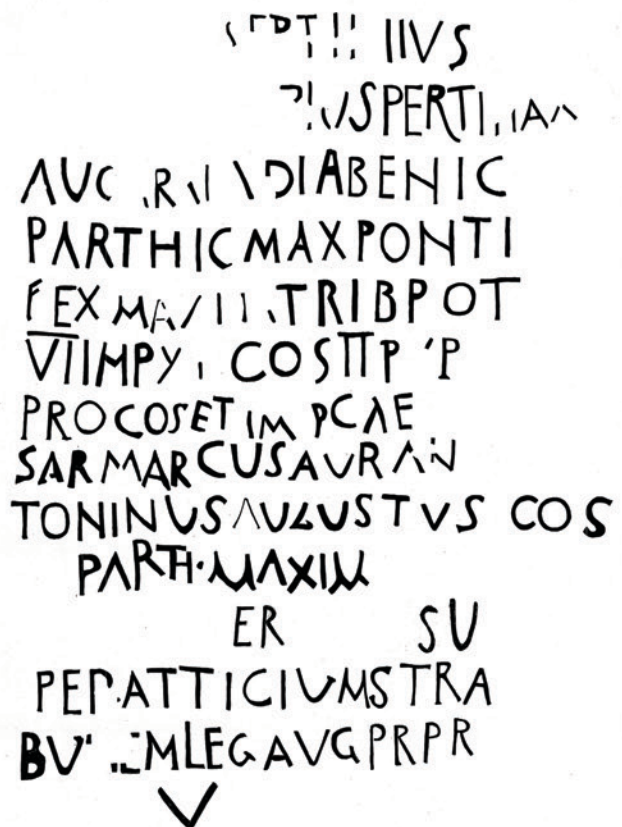 IIVS
PERTI
AUC DIABENIC
PARTHICMAXPONTI
FEX TRIBPOT
VIIMPV COSIIP P
PROCOSET IM PCAE
SARMARCUSAURAN
TONINUSAUGUSTVS COS
PARTH·MAXIM
ER SU
PER·ATTICIUMSTRA
BV MLEGAVGPRPR
V